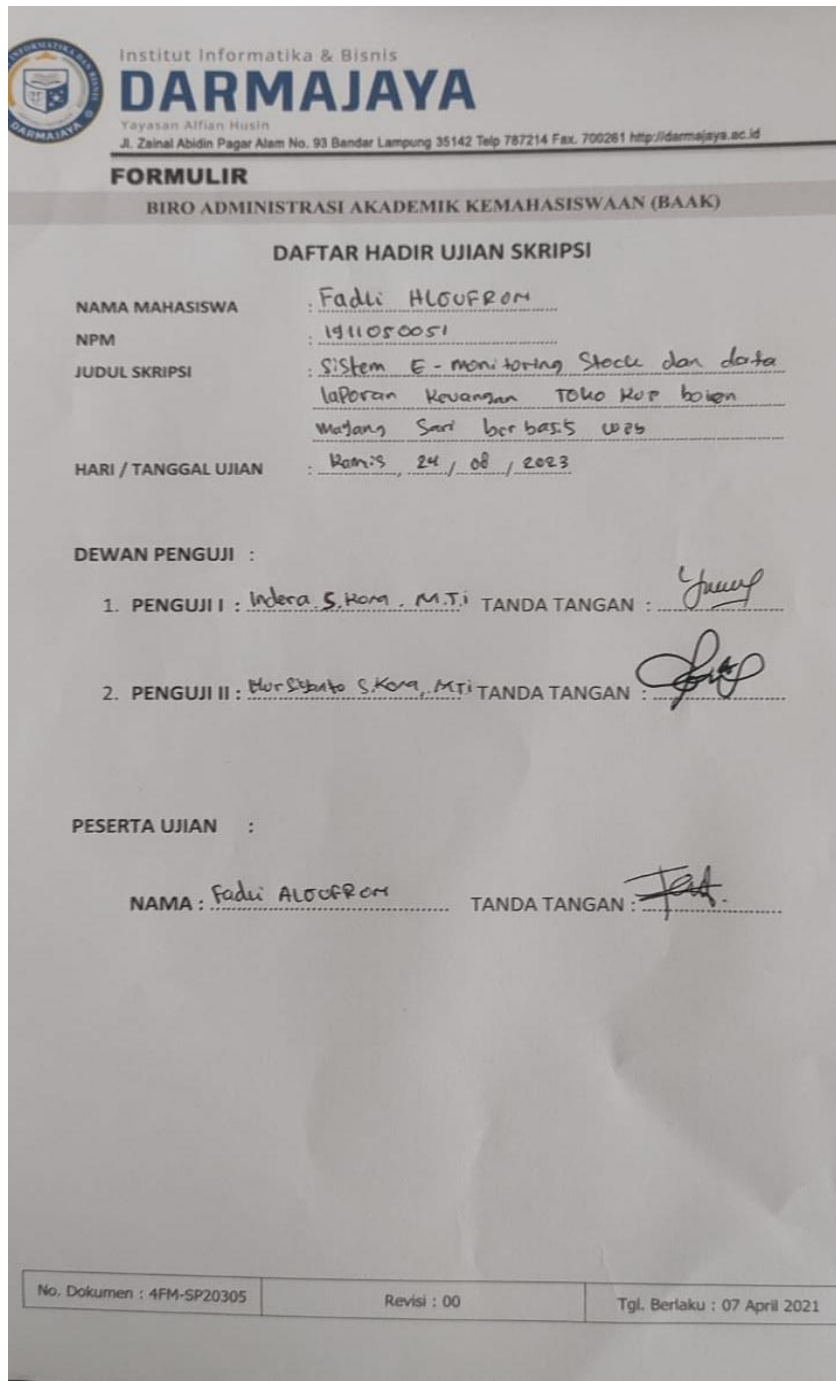 Institut Informatika & Bisnis
DARMAJAYA
Yayasan Alfian Husin
Jl. Zainal Abidin Pagar Alam No. 93 Bandar Lampung 35142 Telp 787214 Fax. 700261 http://darmajaya.ac.id
FORMULIR
BIRO ADMINISTRASI AKADEMIK KEMAHASISWAAN (BAAK)
DAFTAR HADIR UJIAN SKRIPSI
NAMA MAHASISWA : Fadli
NPM : 1911050051
JUDUL SKRIPSI : Sistem E-monitoring Stock dan data
laporan Keuangan Toko
Sari berbasis web
HARI / TANGGAL UJIAN : Kamis, 24 / 08 / 2023
DEWAN PENGUJI :
1. PENGUJI I : Indera. S.Kom. M.T.i TANDA TANGAN :
2. PENGUJI II : S.Kom, MTi TANDA TANGAN :
PESERTA UJIAN :
NAMA : Fadli TANDA TANGAN :
No. Dokumen : 4FM-SP20305 Revisi : 00 Tgl. Berlaku : 07 April 2021